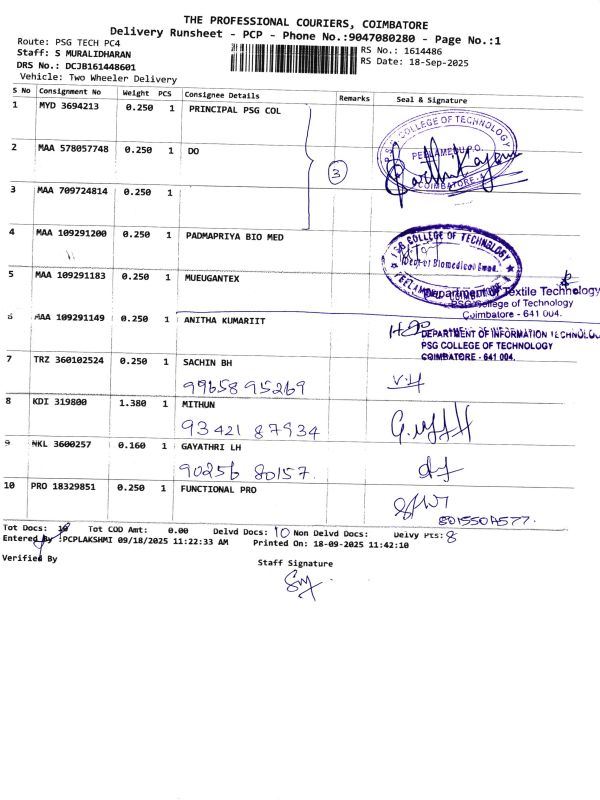 THE PROFESSIONAL COURIERS, COIMBATORE
Delivery Runsheet - PCP - Phone No.:9047080280 - Page No.:1
Route: PSG TECH PC4
Staff: S MURALIDHARAN
DRS No.: DCJB161448601
Vehicle: Two Wheeler Delivery
RS No.: 1614486
RS Date: 18-Sep-2025
S No Consignment No Weight PCS Consignee Details Remarks Seal & Signature
1 MYD 3694213 0.250 1 PRINCIPAL PSG COL
2 MAA 578057748 0.250 1 DO
3 MAA 709724814 0.250 1
3
PSG COLLEGE OF TECHNOLOGY
PEELAMEDU P.O.
COIMBATORE
4 MAA 109291200 0.250 1 PADMAPRIYA BIO MED
PSG COLLEGE OF TECHNOLOGY
Dept of Biomedical Engg.
PEELAMEDU COIMBATORE
5 MAA 109291183 0.250 1 MUEUGANTEX
Department of Textile Technology
PSG College of Technology
Coimbatore - 641 004.
6 MAA 109291149 0.250 1 ANITHA KUMARIIT
DEPARTMENT OF INFORMATION TECHNOLOG
PSG COLLEGE OF TECHNOLOGY
COIMBATORE - 641 004.
7 TRZ 360102524 0.250 1 SACHIN BH
99658 95269
8 KDI 319800 1.380 1 MITHUN
93421 87934
9 NKL 3600257 0.160 1 GAYATHRI LH
90256 80157.
10 PRO 18329851 0.250 1 FUNCTIONAL PRO
Tot Docs: 10 Tot COD Amt: 0.00 Delvd Docs: 10 Non Delvd Docs: Delvy Pts: 8
Entered By :PCPLAKSHMI 09/18/2025 11:22:33 AM Printed On: 18-09-2025 11:42:10
Verified By
Staff Signature